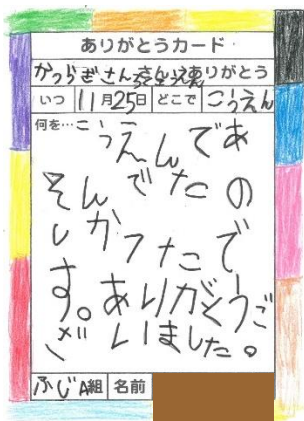 ありがとうカード
かつらぎさん ありがとう
いつ 11月25日 どこで こうえん
何を…こうえんであ
そんでたの
しかつたで
す。ありがとうご
ざいました。
ふじA組 名前